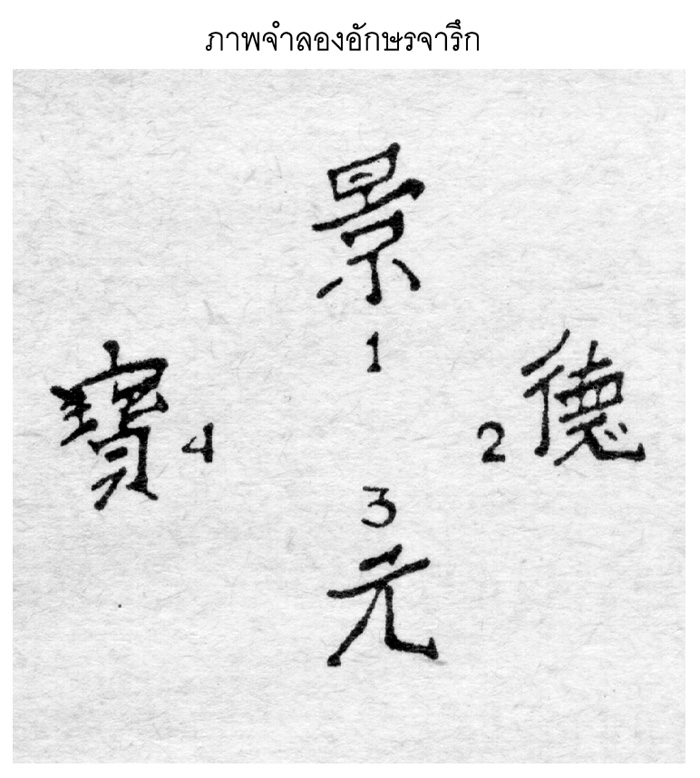 ภาพจำลองอักษรจารึก
景
1
德
2
3
元
寶
4